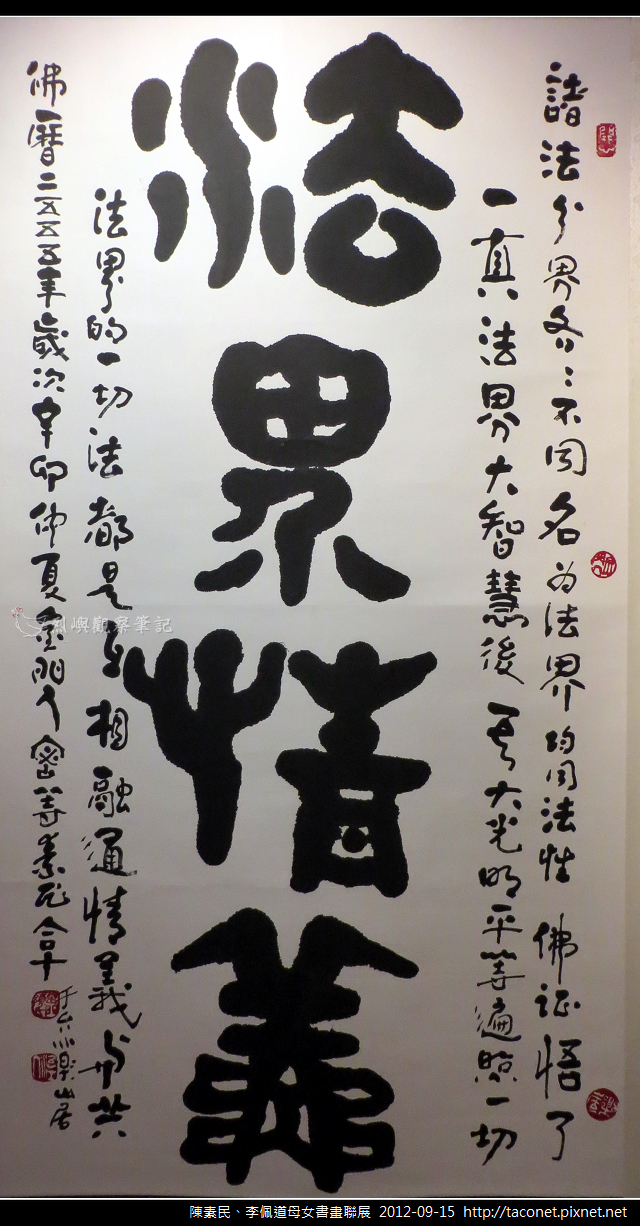 諸法分界各各不同名為法界均同法性 佛證悟了
一真法界大智慧後 大光明平等遍照一切
法界情義
法界的一切法都是互相融通情義與共
佛曆二五五五年歲次辛卯仲夏金門人密等素民合十
山居
烈嶼觀察筆記
陳素民、李佩道母女書畫聯展 2012-09-15 http://taconet.pixnet.net